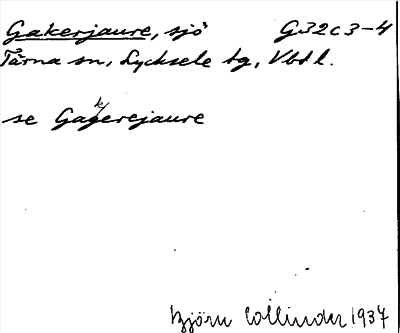 Gakerjaure, sjö G32c3-4
Tärna sn, Lycksele lg, Vbtl.
k
se Gagerejaure
Björn Collinder 1937